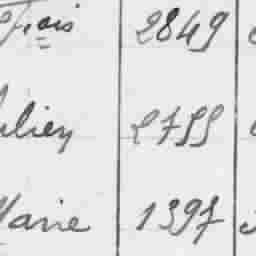 çois 2849
ulien 2755
Marie 1397